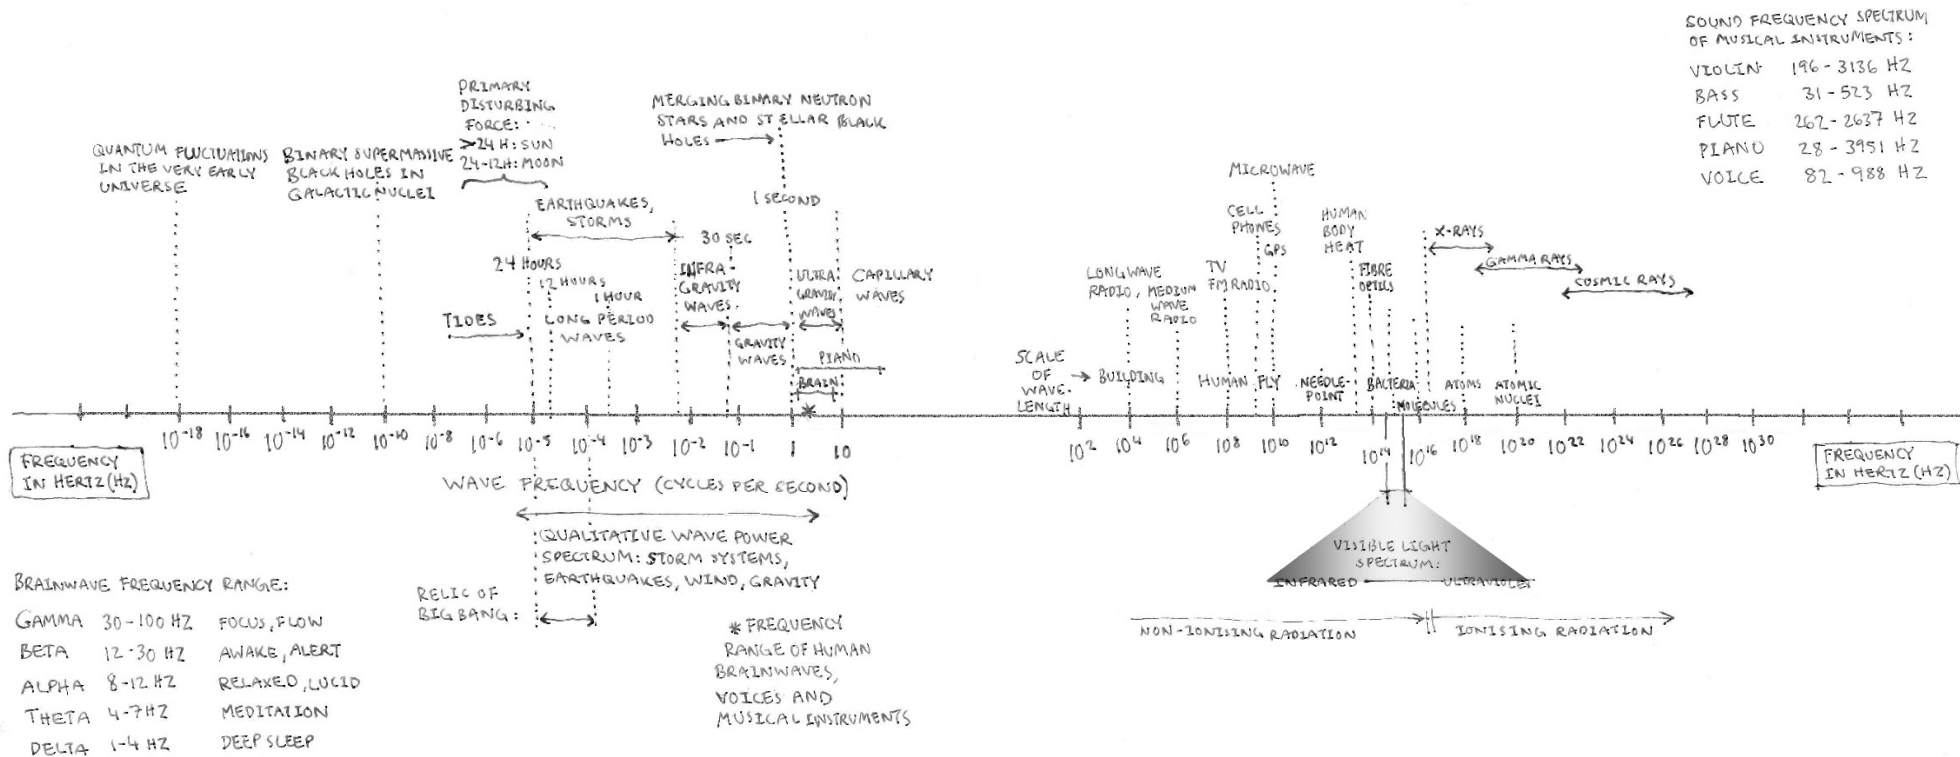 SOUND FREQUENCY SPECTRUM
OF MUSICAL INSTRUMENTS:
VIOLIN 196-3136 HZ
BASS 31-523 HZ
FLUTE 262-2637 HZ
PIANO 28-3951 HZ
VOICE 82-988 HZ
QUANTUM FLUCTUATIONS
IN THE VERY EARLY
UNIVERSE
BINARY SUPERMASSIVE
BLACK HOLES IN
GALACTIC NUCLEI
PRIMARY
DISTURBING
FORCE:
>24 H: SUN
24-12H: MOON
MERGING BINARY NEUTRON
STARS AND STELLAR BLACK
HOLES
EARTHQUAKES,
STORMS
1 SECOND
30 SEC
24 HOURS
12 HOURS
1 HOUR
TIDES
LONG PERIOD
WAVES
INFRA-
GRAVITY
WAVES
GRAVITY
WAVES
ULTRA
GRAVITY
WAVES
CAPILLARY
WAVES
PIANO
BRAIN
*
MICROWAVE
CELL
PHONES
GPS
HUMAN
BODY
HEAT
X-RAYS
GAMMA RAYS
COSMIC RAYS
LONGWAVE
RADIO,
MEDIUM
WAVE
RADIO
TV
FM RADIO
FIBRE
OPTICS
SCALE
OF
WAVE-
LENGTH
BUILDING
HUMAN
FLY
NEEDLE-
POINT
BACTERIA
MOLECULES
ATOMS
ATOMIC
NUCLEI
10⁻¹⁸ 10⁻¹⁶ 10⁻¹⁴ 10⁻¹² 10⁻¹⁰ 10⁻⁸ 10⁻⁶ 10⁻⁵ 10⁻⁴ 10⁻³ 10⁻² 10⁻¹ 1 10 10² 10⁴ 10⁶ 10⁸ 10¹⁰ 10¹² 10¹⁴ 10¹⁶ 10¹⁸ 10²⁰ 10²² 10²⁴ 10²⁶ 10²⁸ 10³⁰
FREQUENCY
IN HERTZ (HZ)
WAVE FREQUENCY (CYCLES PER SECOND)
FREQUENCY
IN HERTZ (HZ)
QUALITATIVE WAVE POWER
SPECTRUM: STORM SYSTEMS,
EARTHQUAKES, WIND, GRAVITY
RELIC OF
BIG BANG:
VISIBLE LIGHT
SPECTRUM:
INFRARED
ULTRAVIOLET
NON-IONISING RADIATION
IONISING RADIATION
BRAINWAVE FREQUENCY RANGE:
GAMMA 30-100 HZ FOCUS, FLOW
BETA 12-30 HZ AWAKE, ALERT
ALPHA 8-12 HZ RELAXED, LUCID
THETA 4-7HZ MEDITATION
DELTA 1-4 HZ DEEP SLEEP
* FREQUENCY
RANGE OF HUMAN
BRAINWAVES,
VOICES AND
MUSICAL INSTRUMENTS